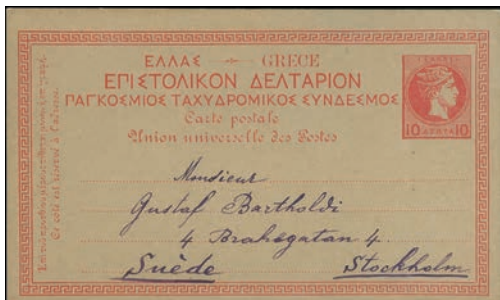 ΕΛΛΑΣ GRECE
ΕΠΙΣΤΟΛΙΚΟΝ ΔΕΛΤΑΡΙΟΝ
ΠΑΓΚΟΣΜΙΟΣ ΤΑΧΥΔΡΟΜΙΚΟΣ ΣΥΝΔΕΣΜΟΣ
Carte postale
Union universelle des Postes
10 ΛΕΠΤΑ 10
Ce coté est réservé à l'adresse.
Monsieur
Gustaf Bartholdi
4 Brahegatan 4.
Suède Stockholm